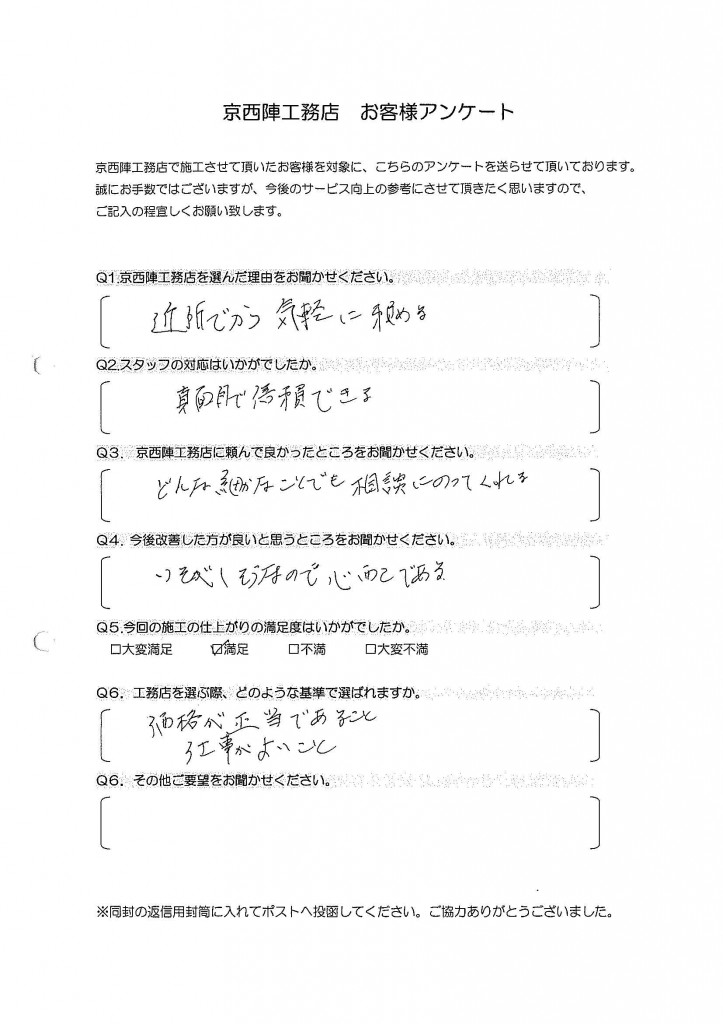 京西陣工務店　お客様アンケート
京西陣工務店で施工させて頂いたお客様を対象に、こちらのアンケートを送らせて頂いております。
誠にお手数ではございますが、今後のサービス向上の参考にさせて頂きたく思いますので、
ご記入の程宜しくお願い致します。
Q1.京西陣工務店を選んだ理由をお聞かせください。
近所でかつ 気軽に 頼める
Q2.スタッフの対応はいかがでしたか。
真面目で信頼できる
Q3． 京西陣工務店に頼んで良かったところをお聞かせください。
どんな細かなことでも 相談にのってくれる
Q4．今後改善した方が良いと思うところをお聞かせください。
いそがしそうなので心配である
Q5.今回の施工の仕上がりの満足度はいかがでしたか。
□大変満足 ☑満足 □不満 □大変不満
Q6．工務店を選ぶ際、どのような基準で選ばれますか。
価格が正当であること
工事がよいこと
Q6．その他ご要望をお聞かせください。
※同封の返信用封筒に入れてポストへ投函してください。ご協力ありがとうございました。